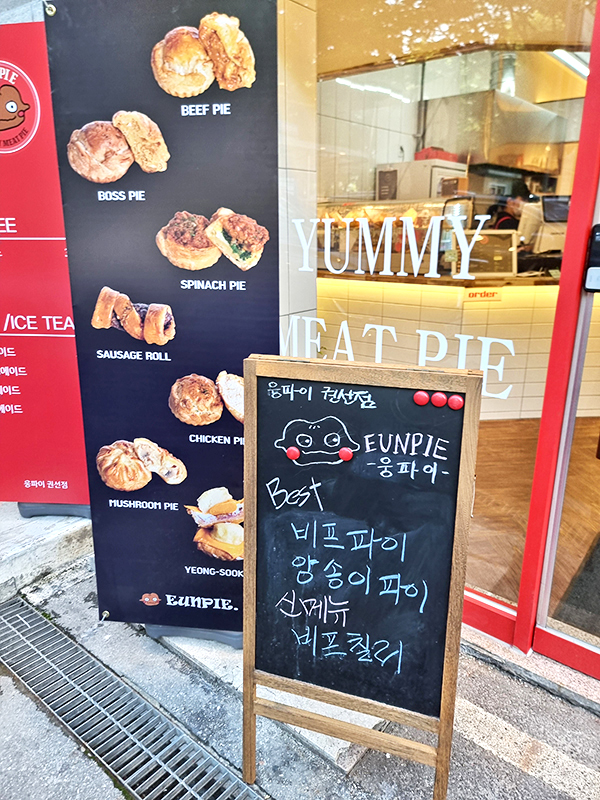 PIE
MEAT PIE
EE
/ICE TEA
에이드
에이드
에이드
에이드
웅파이 권선점
BEEF PIE
BOSS PIE
SPINACH PIE
SAUSAGE ROLL
CHICKEN PIE
MUSHROOM PIE
YEONG-SOOK
EUNPIE.
YUMMY
MEAT PIE
order
웅파이 권선점
EUNPIE
-웅파이-
Best
비프파이
양송이파이
신메뉴
비프칠리